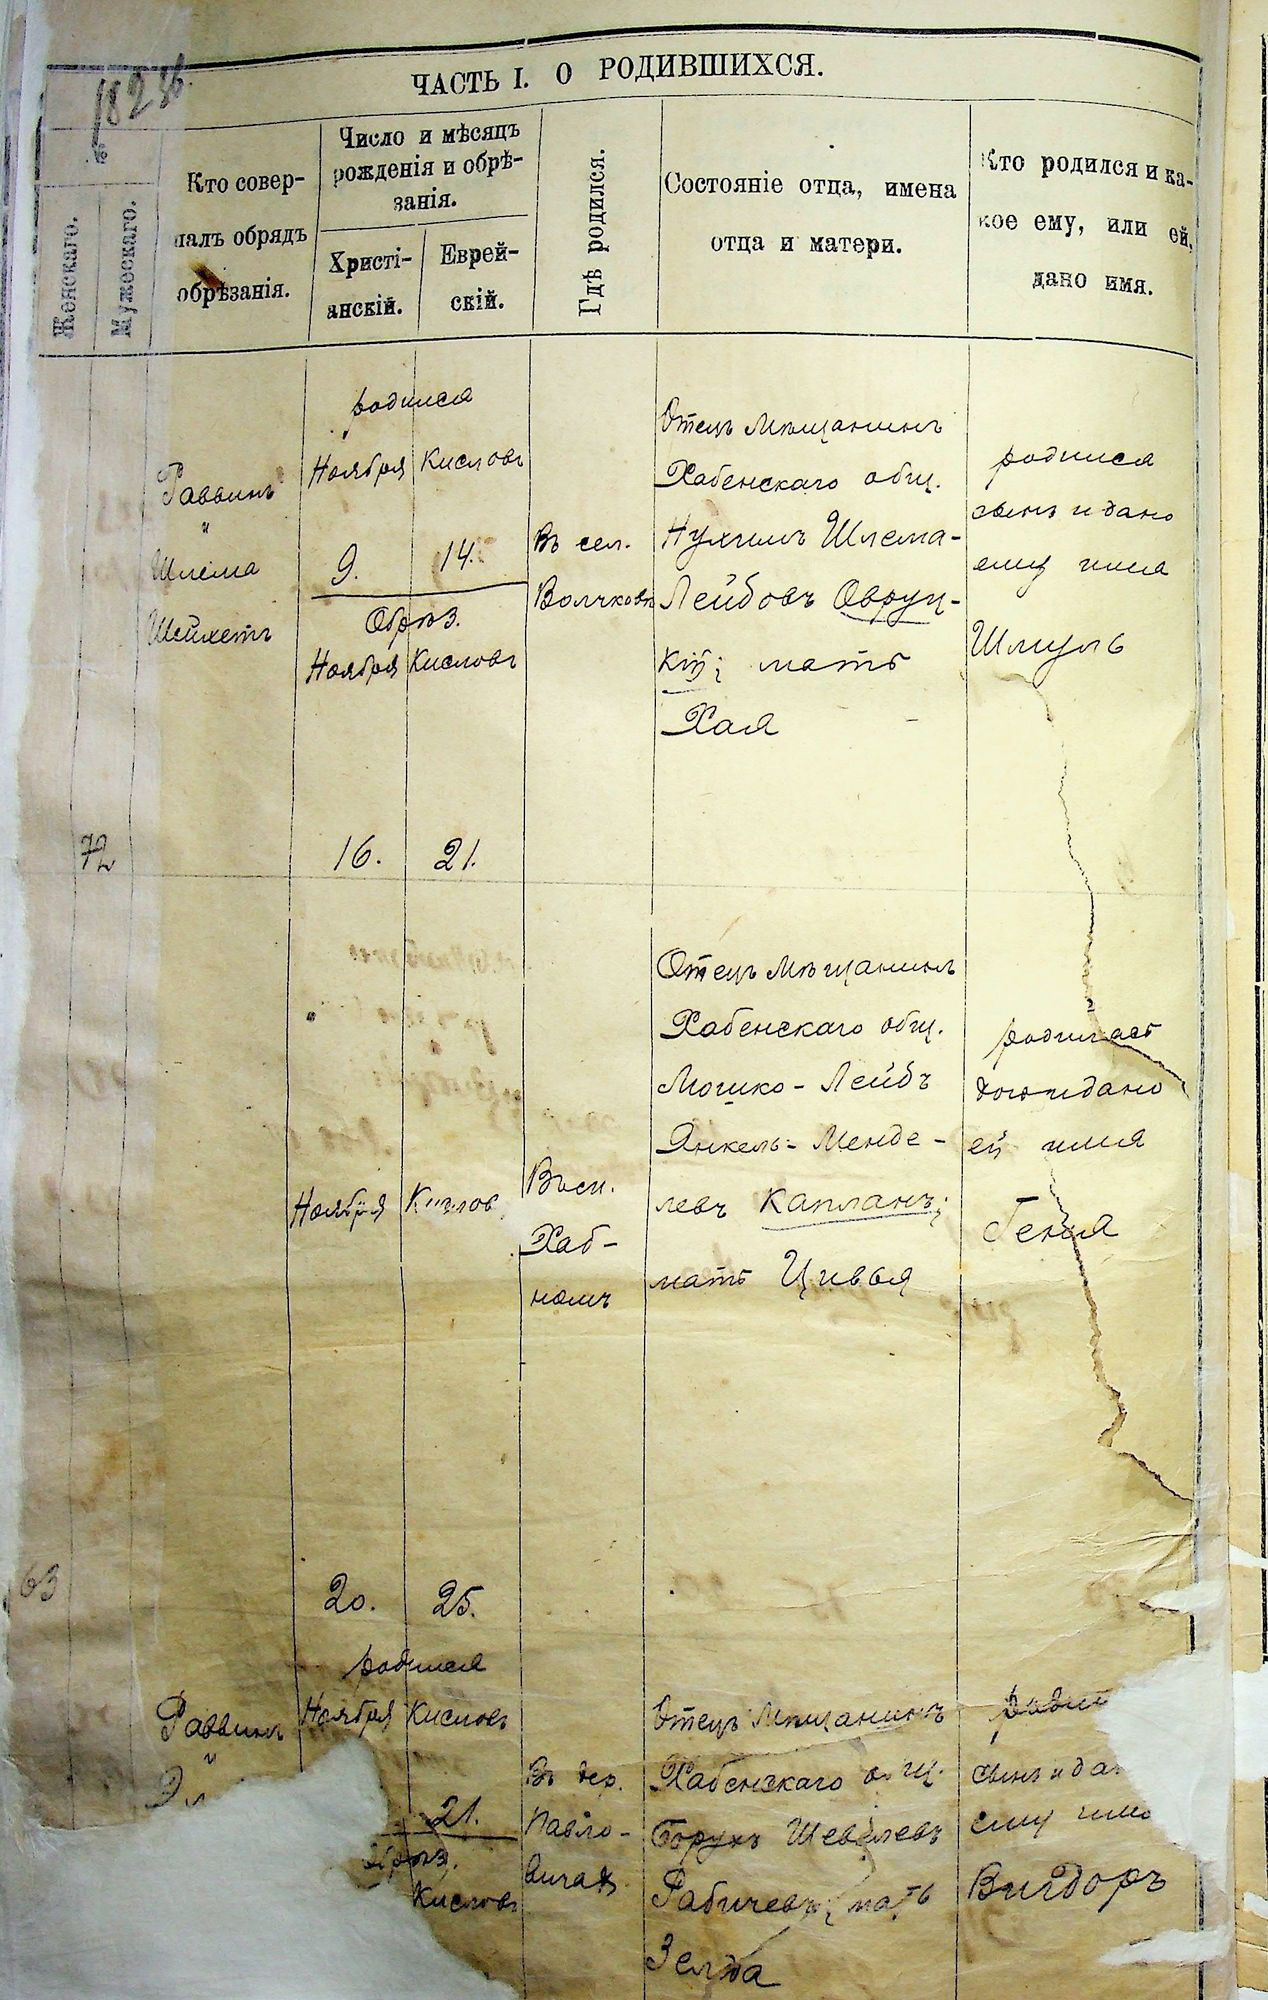 182 зв.
ЧАСТЬ I. О РОДИВШИХСЯ.
№
Женскаго.
Мужескаго.
Кто совер-
шалъ обрядъ
обрѣзанія.
Число и мѣсяцъ
рожденія и обрѣ-
занія.
Христі-
анскій.
Еврей-
скій.
Гдѣ родился.
Состояніе отца, имена
отца и матери.
Кто родился и ка-
кое ему, или ей,
дано имя.
72
Раввинъ
и
Шлема
Шейхетъ
родился
Ноября Кисловъ
9. 14.
Обрѣз.
Ноября Кисловъ
16. 21.
Въ сел.
Волчковѣ
Отецъ Мѣщанинъ
Хабенскаго общ.
Нухимъ Шлема-
Лейбовъ Овруц-
кій; мать
Хая
родился
сынъ и дано
ему имя
Шмуль
63
Ноября Кислов
20. 25.
Въ м.
Хаб-
номъ
Отецъ Мѣщанинъ
Хабенскаго общ.
Мошко-Лейбъ
Янкель-Менде-
левъ Капланъ;
мать Цивья
родилась
дочь и дано
ей имя
Геня
Раввинъ
и
родился
Ноября Кисловъ
21.
Обрѣз.
Кисловъ
Въ дер.
Павло-
вичахъ
Отецъ Мѣщанинъ
Хабенскаго общ.
Борухъ Шевелевъ
Рабичевъ; мать
Зелда
родил
сынъ и дан
ему имя
Вигдоръ